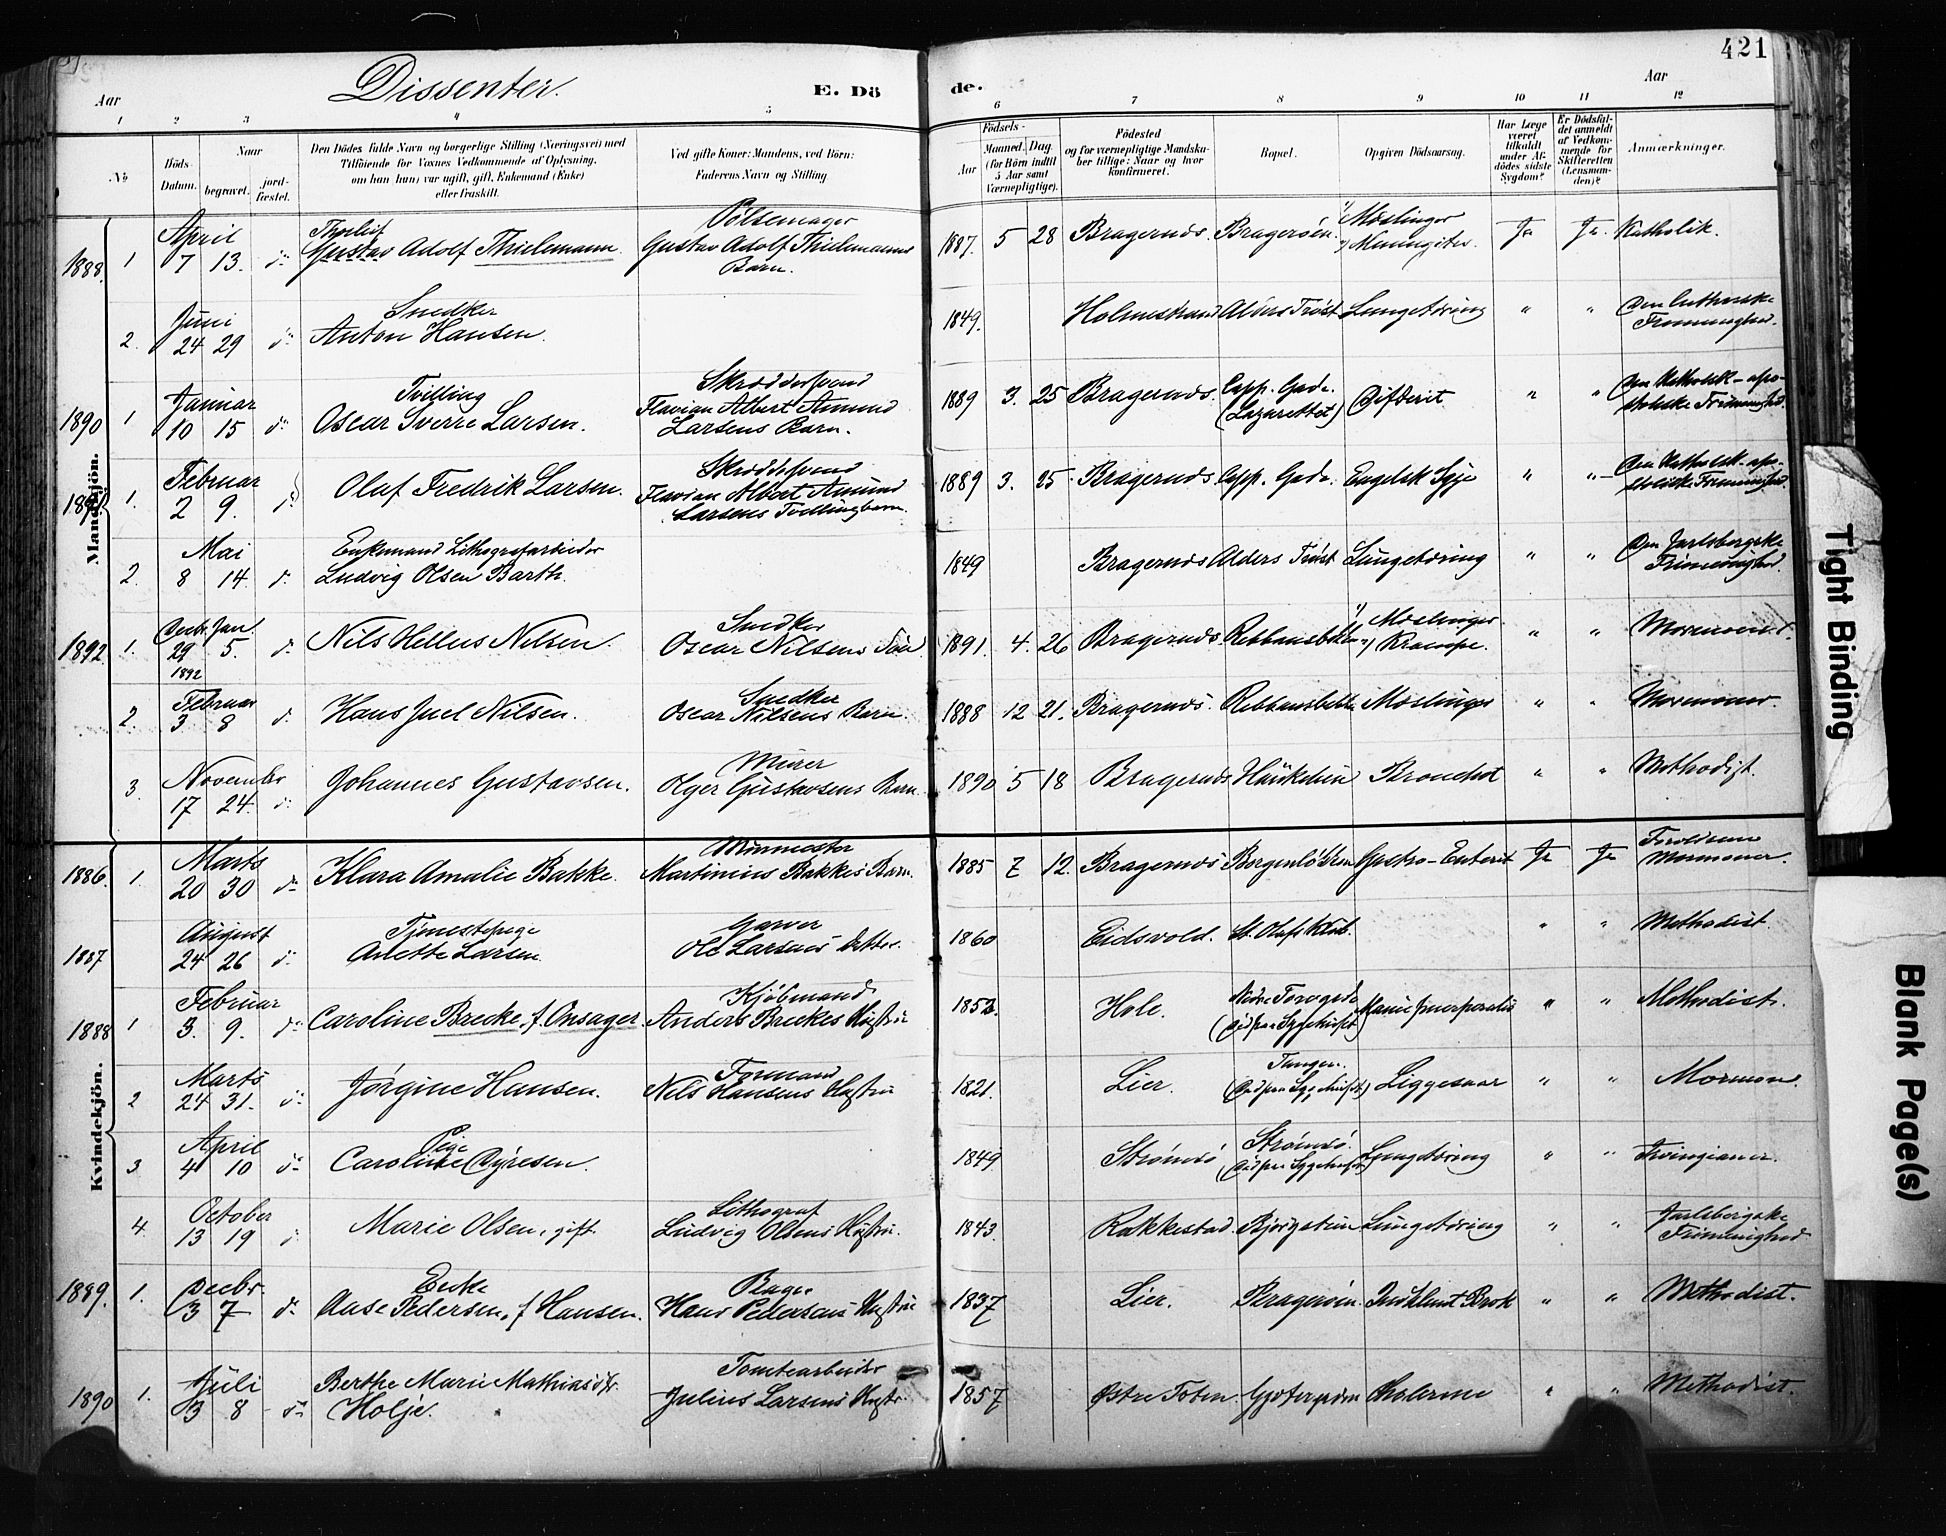 421
Dissenter.
E. Dö
de.
Aar
Aar
1 2 3 4 5 6 7 8 9 10 11 12
№
Döds-Datum.
Naar
begravet.
jordfæstet.
Den Dödes fulde Navn og borgerlige Stilling (Næringsvei) med
Tilföiende for Voxnes Vedkommende af Oplysning,
om han (hun) var ugift, gift, Enkemand (Enke)
eller fraskilt.
Ved gifte Koner: Mandens, ved Börn:
Faderens Navn og Stilling
Födsels-
Aar
Maaned. Dag.
(for Börn indtil
5 Aar samt
Værnepligtige).
Födested
og for værnepligtige Mandskaber tillige: Naar og hvor
konfirmeret.
Bopæl.
Opgiven Dödsaarsag.
Har Læge
været
tilkaldt
under Afdödes sidste
Sygdom?
Er Dödsfaldet anmeldt
af Vedkommende for
Skifteretten
(Lensmanden)?
Anmærkninger.
Mandkjön.
1888. 1 April 7 13. do Thorleif Gustav Adolf Thielemann. Pölsemager Gustav Adolf Thielemanns Barn. 1887. 5 28 Bragernæs. Bragerøen. 1) Mæslinger 2) Meningites. Ja Ja. Katholik.
2. Juni 24 29 do Snedker Anton Hansen. 1849. Holmestrand Alders Trøst Lungetæring " " Den lutherske Frimenighed.
1890 1 Januar 10 15 do Tvilling Oscar Sverre Larsen. Skræddersvend Flavian Albert Amund Larsens Barn. 1889 3. 25 Bragernæs. Capp. Gade. (Lazarettet) Difterit " " Den Katholsk-apostoliske Frimenighed.
1891 1. Februar 2 9. do Olaf Fredrik Larsen. Skræddersvend Flavian Albert Amund Larsens Tvillingbarn. 1889 3. 25 Bragernæs Capp. Gade. Engelsk Syge " " Den Katholsk-apostolske Frimenighed.
2. Mai 8 14. do Enkemand Lithografarbeider Ludvig Olsen Barth. 1849 Bragernæs Alders Trøst Lungetæring " " Den Jarlsbergske Frimenighed.
1892 1. Decbr. Jan. 29 5. do Nils Hellus Nilsen. Snedker Oscar Nilsens Søn 1891. 4. 26 Bragernæs 1) Mæslinger 2) Krampe. " " Mormoner.
1892
2. Februar 3 8 do Hans Juel Nilsen. Snedker Oscar Nilsens Barn. 1888 12 21. Bragernæs Mæslinger " " Mormoner.
3. November 17 24. do Johannes Gustavsen. Murer Olger Gustavsens Barn 1890 5 18 Bragernæs Bronchit " " Methodist.
Kvindekjön.
1886. 1. Marts 20 30 do Klara Amalie Bakke. Murmester Martinius Bakkes Barn. 1885 7 12. Bragernæs Gastro-Enterit Ja Ja Forældrene Mormoner.
1887 August 24 26 do Tjenestepige Anette Larsen. Garver Ole Larsens Datter. 1860 Eidsvold. St. Olafs Klub. " " Methodist.
1888 1 Februar 3. 9. do Caroline Brecke, f. Onsager. Kjøbmand Anders Breckes Hustru 1852. Hole. Nedre Torvegade (Død paa Sygehuset) " " Methodist.
2 Marts 24 31. do Jørgine Hansen. Formand Nils Hansens Hustru 1821. Lier. Tangen. (Død paa Sygehuset) Liggesaar " " Mormon.
3 April 4 10 do Pige Caroline Dyresen. 1849 Strømsø Strømsø. (Død paa Sygehuset) Lungetæring " " Irvingianer.
4. October 13 19 do Marie Olsen, gift. Lithograf Ludvig Olsens Hustru. 1843. Rakkestad. Lungetæring " " Jarlsbergske Frimenighed
1889. 1. Decbr. 3 7 do Enke Aase Pedersen, f. Hansen. Bager Hans Pedersens Hustru 1837 Lier. Bragerøen Indklemt Brok " " Methodist.
1890 1. Juli 3 8 do Berthe Marie Mathiasdtr. Holje. Tomtearbeider Julius Larsens Hustr. 1857 Østre Toten " " Methodist.
Tight Binding
Blank Page(s)